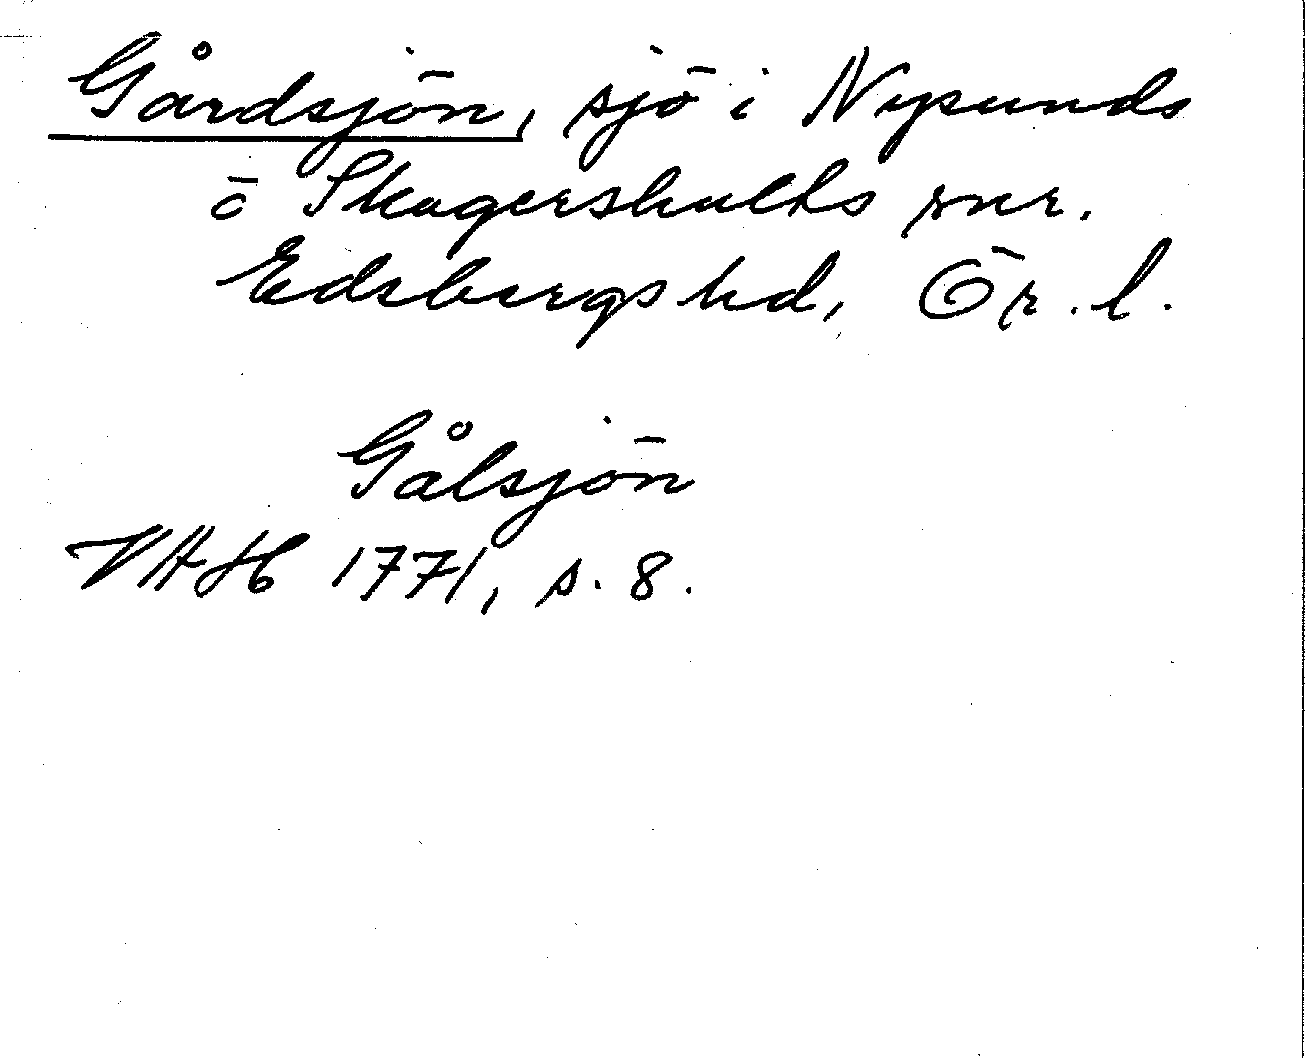 Gårdsjön, sjö i Nysunds
o Skagershults snr.
Edsbergs hd, Ör. l.
Gålsjön
VAH 1771, s. 8.